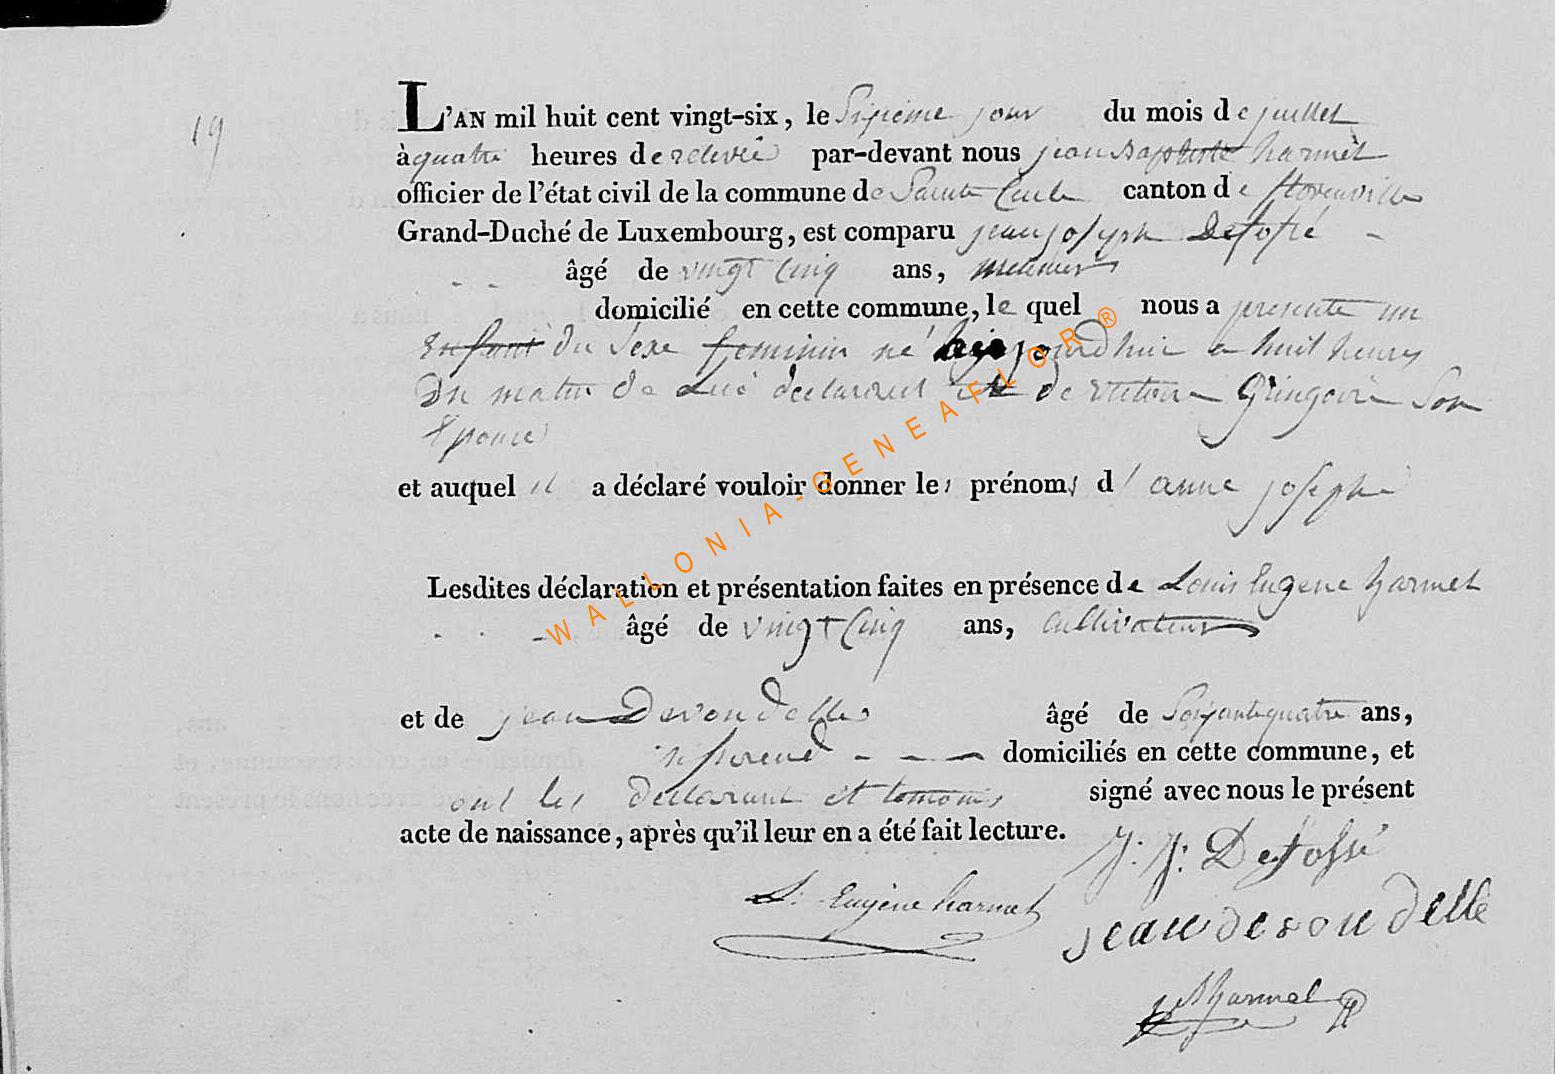 19
L'AN mil huit cent vingt-six, le Sixieme jour du mois de juillet
à quatre heures de relevée par-devant nous jean Baptiste harmel
officier de l'état civil de la commune de Sainte Cecile canton de florenville
Grand-Duché de Luxembourg, est comparu jean joseph Defossé
âgé de vingt Cinq ans, meunier
domicilié en cette commune, le quel nous a presenté un
Enfant du sexe feminin né aujourdhuit a huit heures
Du matin de Lui déclarant et de victoire Gringoire Son
Epouse
et auquel il a déclaré vouloir donner les prénoms d' anne josephe
Lesdites déclaration et présentation faites en présence de Louis Eugene harmel
âgé de vingt Cinq ans, Cultivateur
et de jean Devondelle âgé de Soixante quatre ans,
domiciliés en cette commune, et
ont les declarant et temoins signé avec nous le présent
acte de naissance, après qu'il leur en a été fait lecture.
J: J: Defossé
L: Eugène harmel
jean devondelle
harmel
WALLONIA-GENEAFLOR®